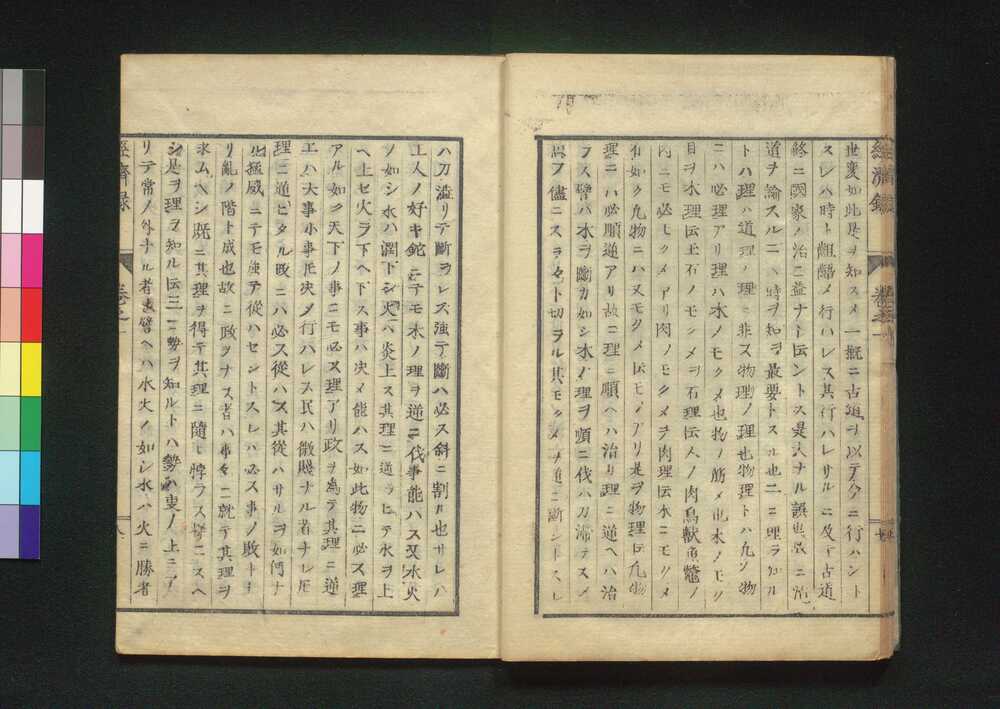 經濟錄 卷之一
世變如此是ヲ知スメ一概ニ古道ヲ以テ今ニ行ハント
スレハ時ト齟齬メ行ハレス其行ハレサルニ及テ古道
終ニ國家ノ治ニ益ナト伝ントス是大ナル誤也故ニ治
道ヲ論スルニハ時ヲ知ヲ最要トスル也二ニ理ヲ知ル
トハ理ハ道理ノ理ニ非ス物理ノ理也物理トハ凡ソ物
ニハ必理アリ理ハ木ノモクメ也物ノ筋メ也木ノモク
目ヲ木理伝玉石ノモクメヲ石理伝人ノ肉鳥獣魚鼈ノ
肉ニモ必モクメアリ肉ノモクメヲ肉理伝水ニモクメ
有如ク凡物ニハ又モクメト伝モノアリ是ヲ物理伝凡物
理ニハ必順逆アリ故ニ理ニ順ヘハ治リ理ニ逆ヘハ治
ラス譬ハ木ヲ斷カ如シ木ノ理ヲ順ニ伐ハ刀滞ラスメ
思フ儘ニスラ々ト切ラル其モクメヲ逆ニ斷ントスレ
ハ刀澁リテ斷ヲレス強テ斷ハ必ス斜ニ割ル也サレハ
工人ノ好キ鉈ニテモ木ノ理ヲ逆ニ伐事能ハス又水火
ノ如シ水ハ潤下シ火ハ炎上ス其理ニ逆ラヒテ水ヲ上
ヘ上セ火ヲ下ヘ下ス事ハ决メ能ハス如此物ニ必ス理
アル如ク天下ノ事ニモ必ス理アリ政ヲ為テ其理ニ逆
エハ大事小事氏决メ行ハレス民ハ微賤ナル者ナレ氏
理ニ逆ヒタル政ニハ必ス從ハス其從ハサルヲ如何ナ
ル猛威ニテモ強テ從ハセントスレハ必ス事ノ敗ト
リ亂ノ階ト成也故ニ政ヲナス者ハ事々ニ就テ其理ヲ
求ムヘシ既ニ其理ヲ得テ其理ニ隨ヒ悖ラス
シ是ヲ理ヲ知ル伝三ニ勢ヲ知ルトハ勢ハ事ノ上ニア
リテ常ノ外ナル者也譬ヘハ水火ノ如シ水ハ火ニ勝者
經濟錄 卷之一